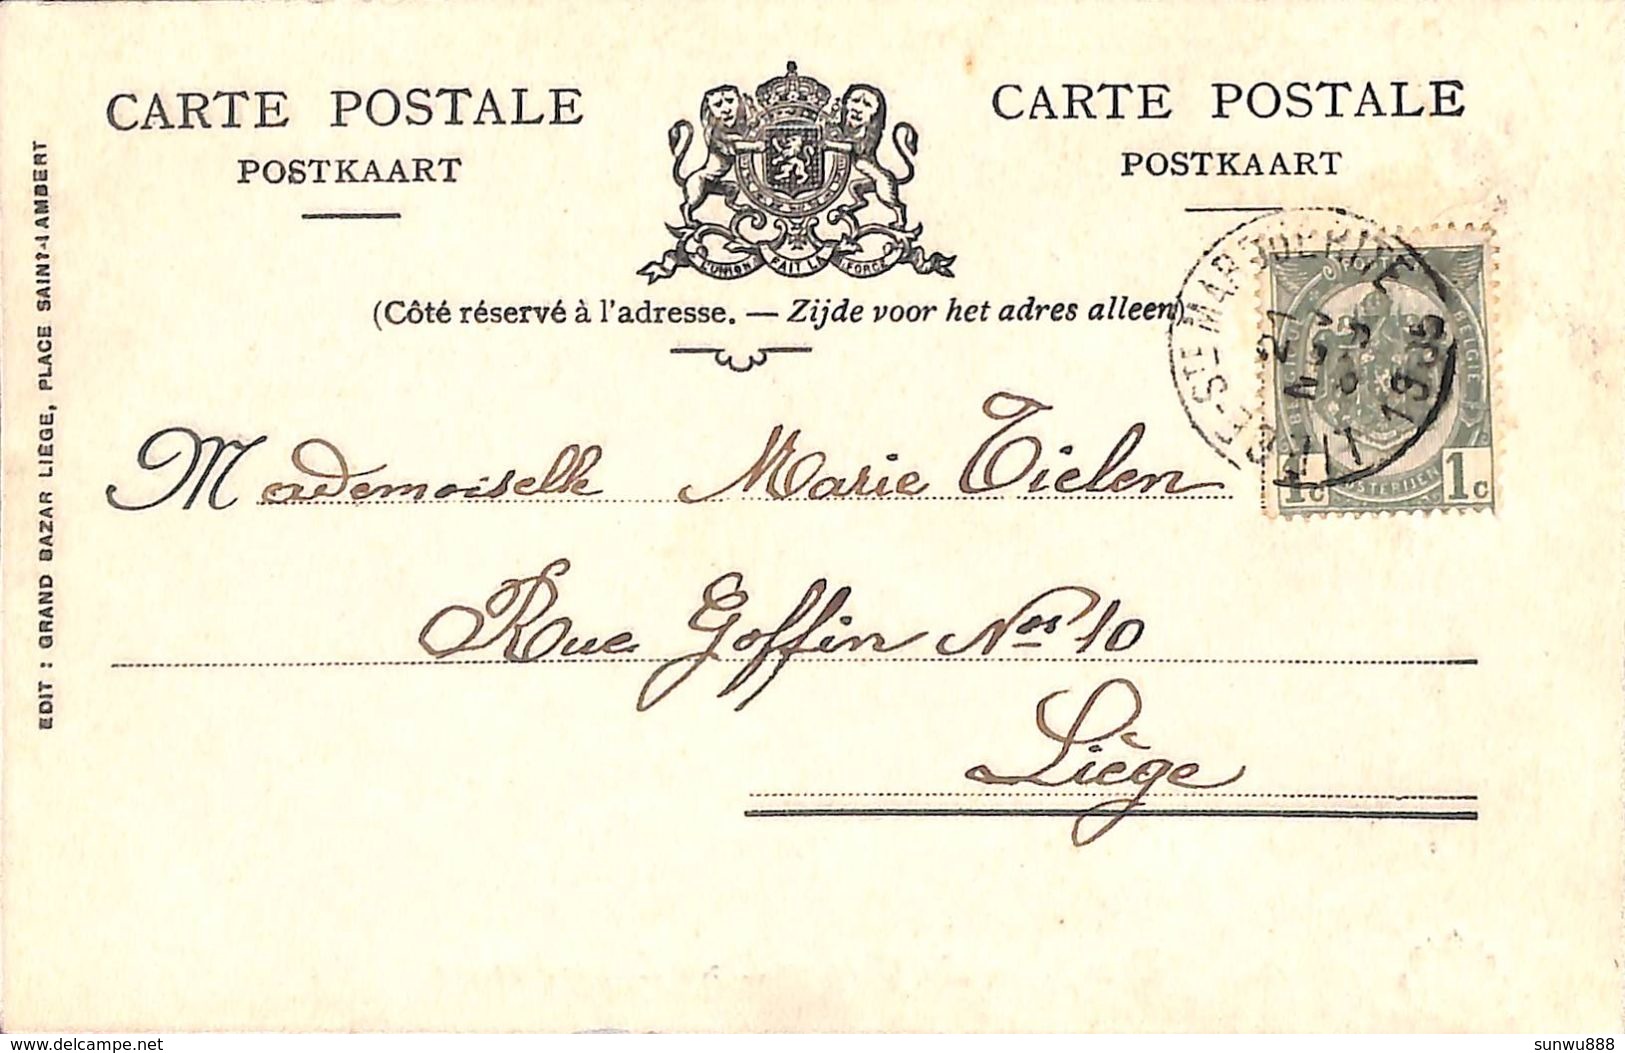 CARTE POSTALE
POSTKAART
CARTE POSTALE
POSTKAART
L'UNION FAIT LA FORCE
(Côté réservé à l'adresse. — Zijde voor het adres alleen)
EDIT : GRAND BAZAR LIÉGE, PLACE SAINT-LAMBERT
STE MARGUERITE
21
NOV
1905
BELGIE
1c 1c
Mademoiselle Marie Tielen
Rue Goffin Nos 10
Liège
delcampe.net
sunwu888